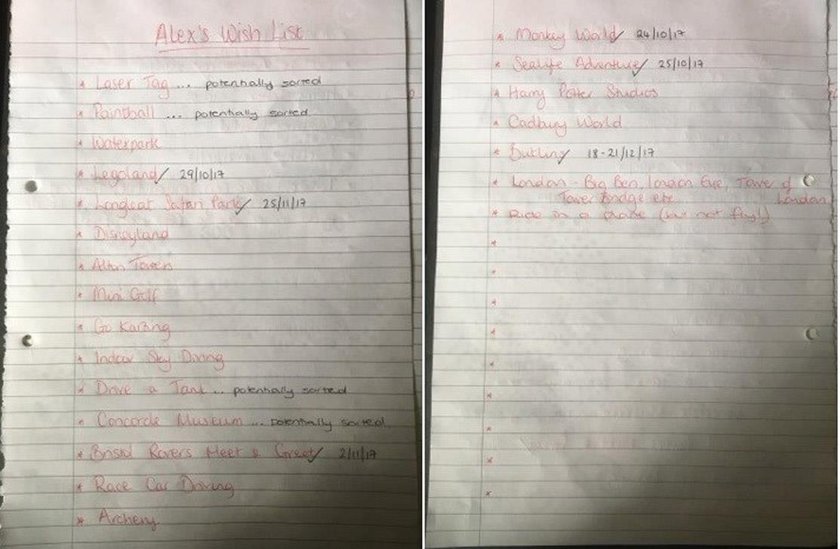 Alex's Wish List
* Laser Tag ... potentially sorted
* Paintball ... potentially sorted
* Waterpark
* Legoland ✓ 29/10/17
* Longleat Safari Park ✓ 25/11/17
* Disneyland
* Alton Towers
* Mini Golf
* Go Karting
* Indoor Sky Diving
* Drive a Tank ... potentially sorted
* Concorde Museum ... potentially sorted
* Bristol Rovers Meet & Greet ✓ 2/11/17
* Race Car Driving
* Archery
* Monkey World ✓ 24/10/17
* Sealife Adventure ✓ 25/10/17
* Harry Potter Studios
* Cadbury World
* Butlins ✓ 18-21/12/17
* London - Big Ben, London Eye, Tower of
Tower Bridge etc. London
* Ride in a plane (but not fly!)
*
*
*
*
*
*
*
*